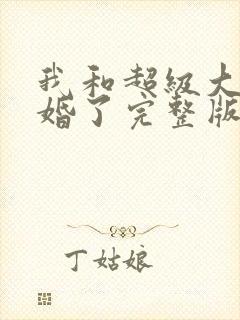 我和超级大
婚了完整版
丁姑娘